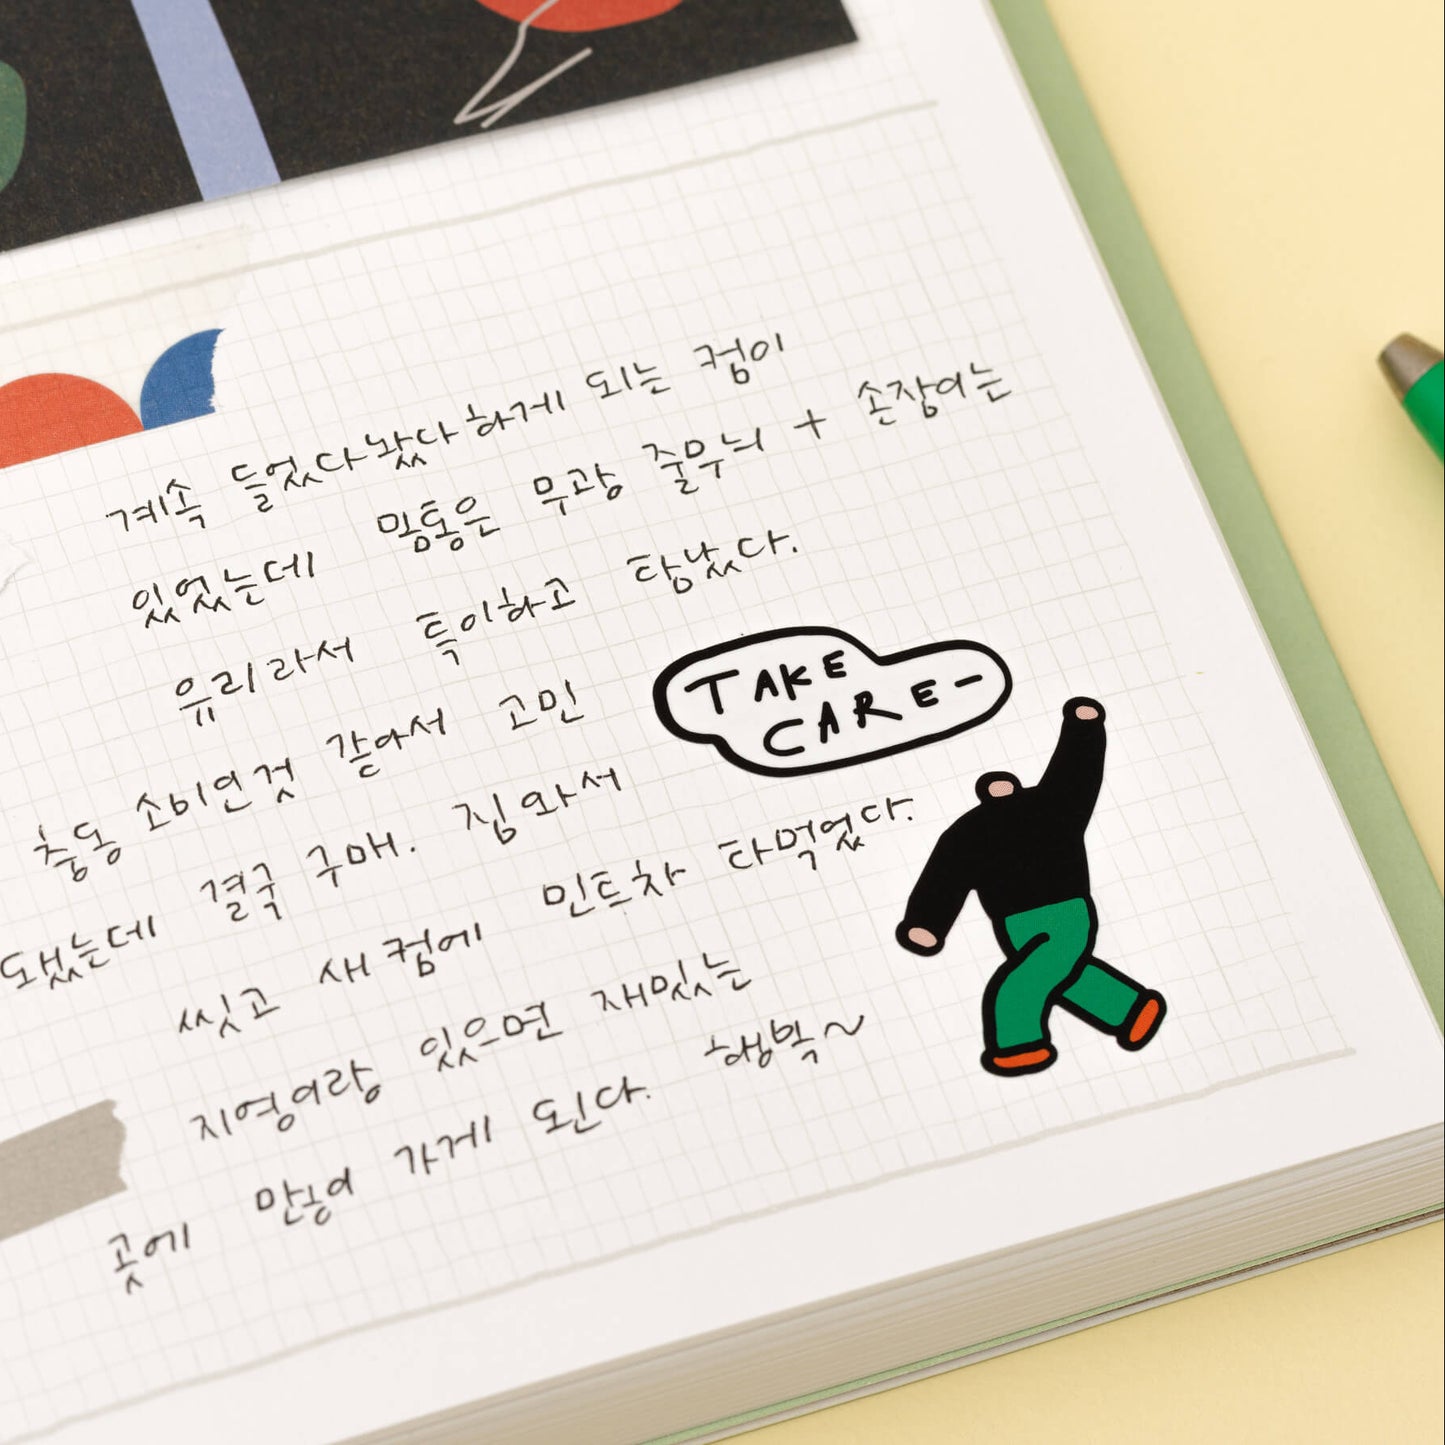 계속 들었다 놨다 하게 되는 컵이
있었는데 몸통은 무광 줄무늬 + 손잡이는
유리라서 특이하고 탐났다.
충동 소비인것 같아서 고민
됐는데 결국 구매. 집 와서
씻고 새 컵에 민트차 타먹었다.
지영이랑 있으면 재밌는
곳에 많이 가게 된다. 행복~
TAKE
CARE-